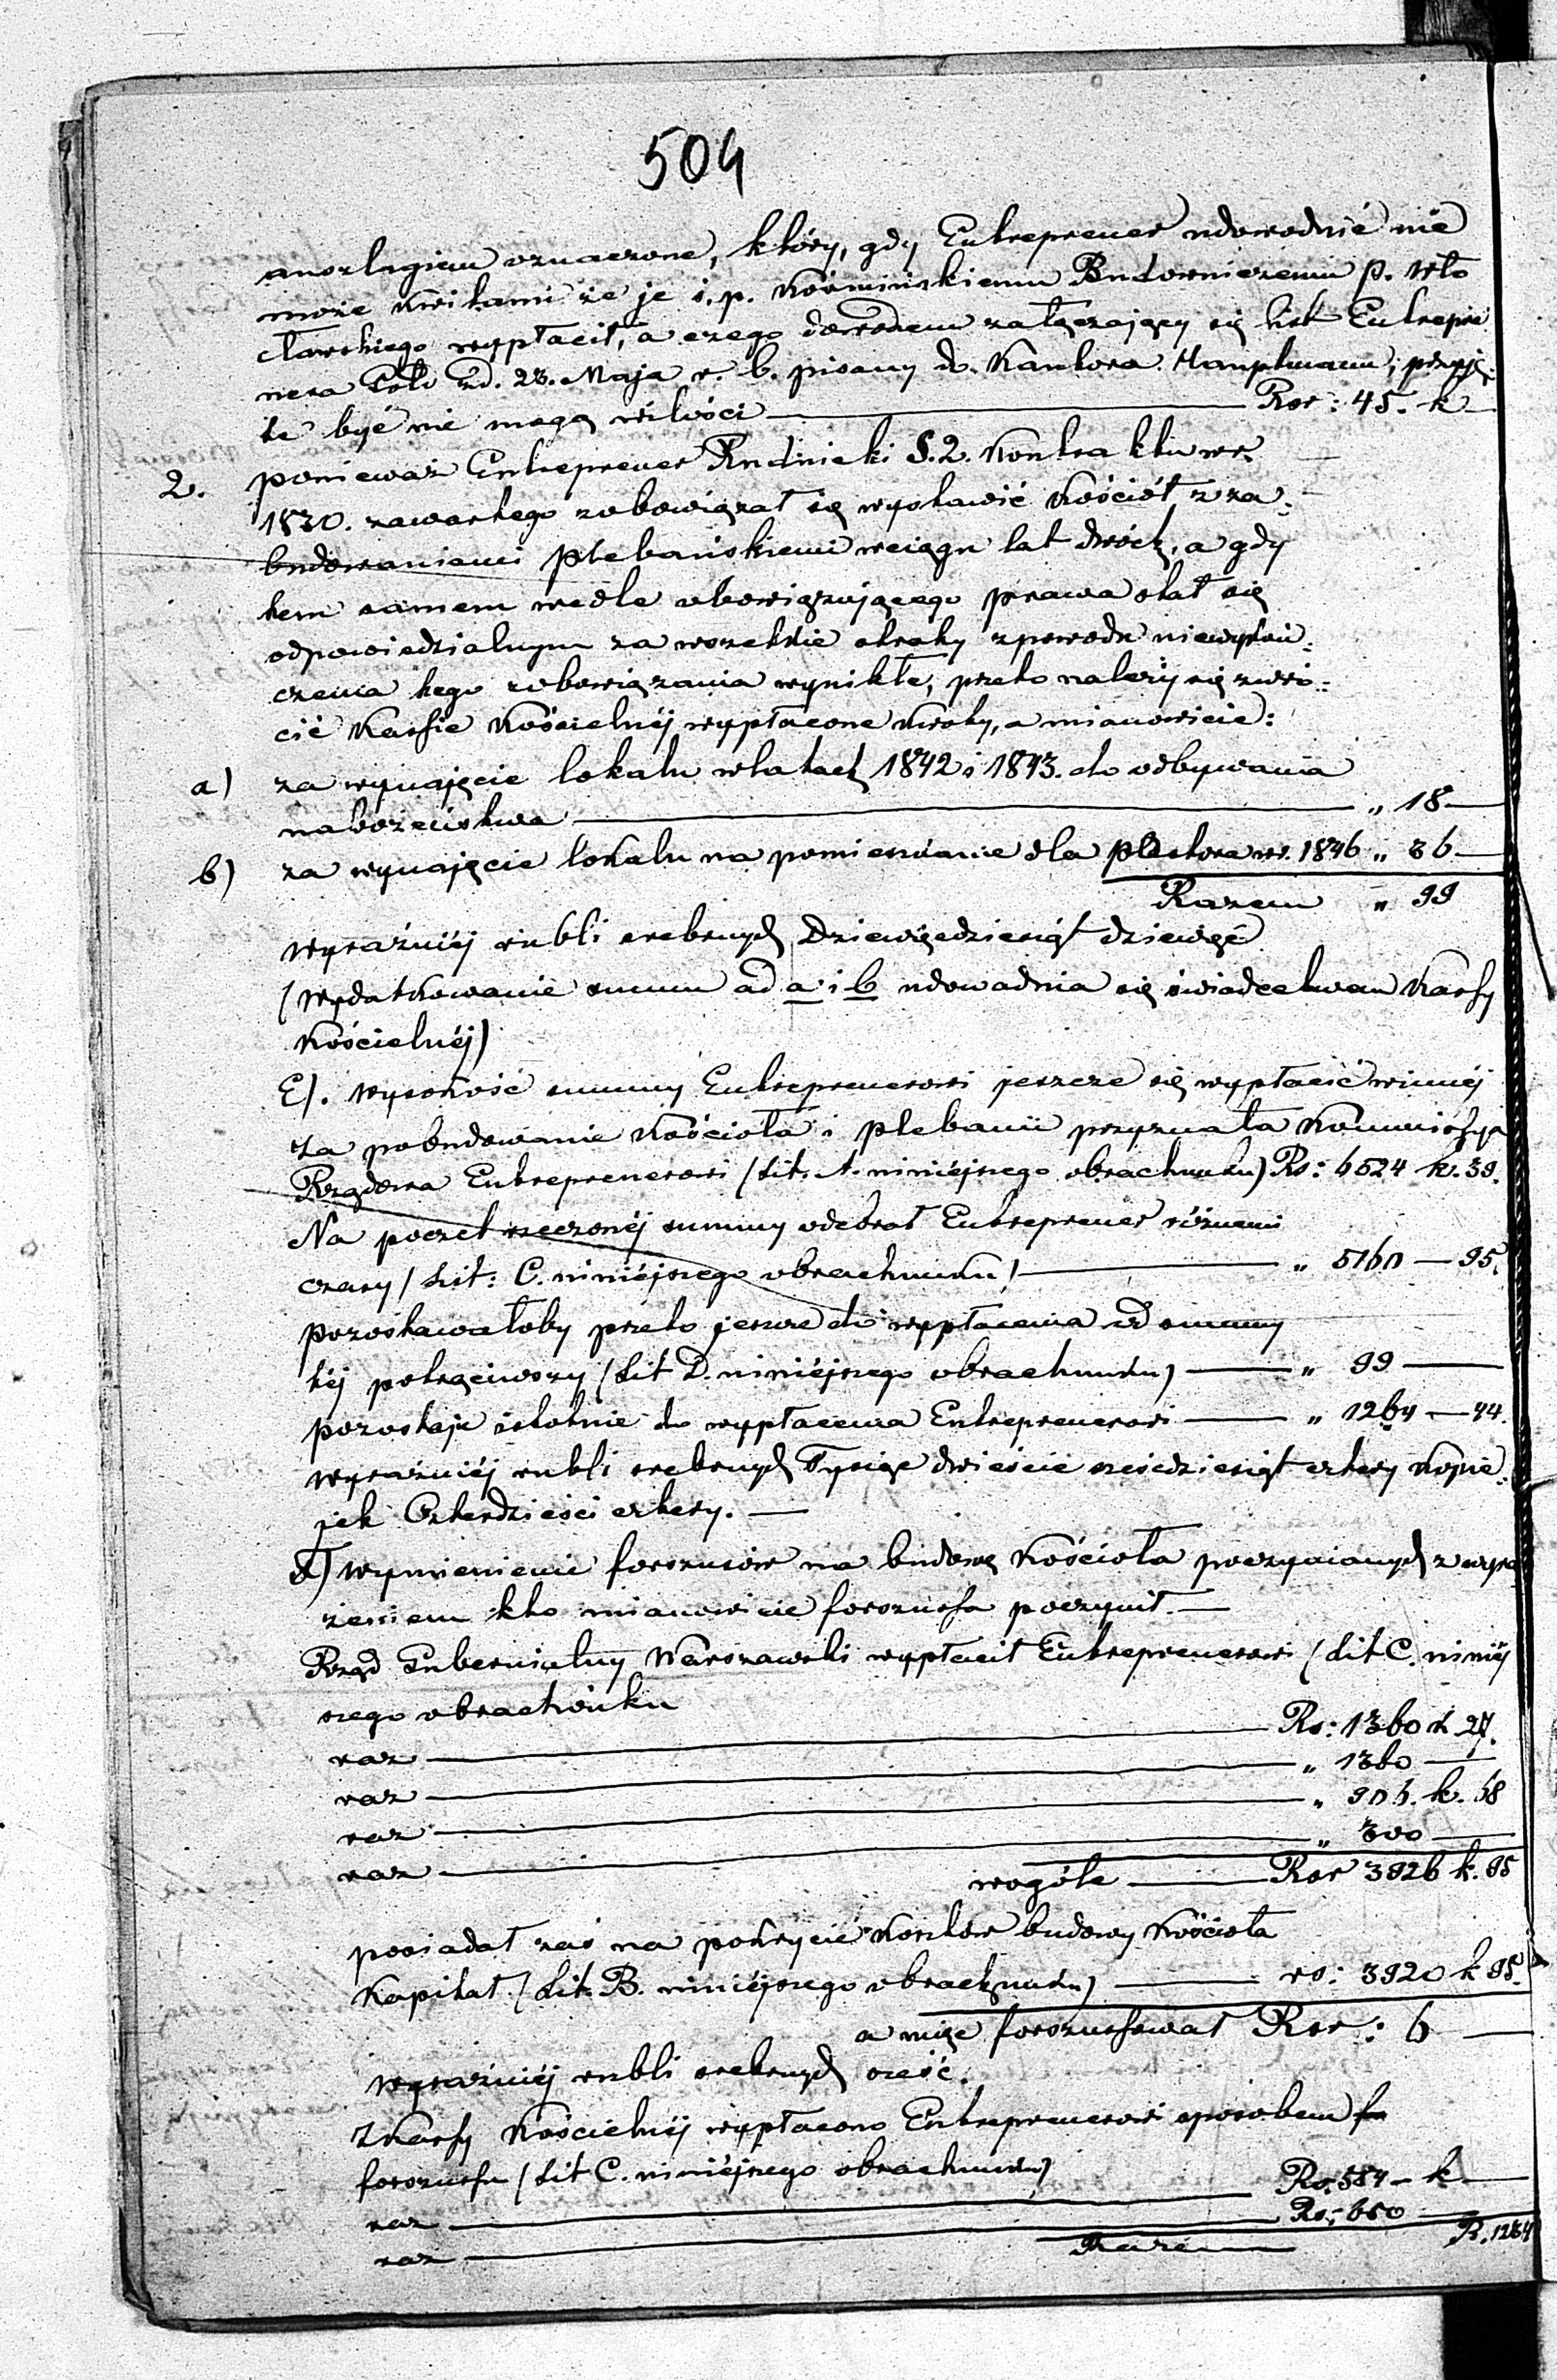 504
anszlagiem oznaczone, który, gdy Entreprener udowodnić nie
może kwitami że je ś. p. Koźmińskiemu Budowniczemu p. Wło
cławskiego wypłacił, a czego dowodem załączający się list Entrepre
nera z d. 23. Maja r. b. pisany do Kantora Hauptmann, przyję-
te być nie mogą w ilości — Rsr: 45. k —
2. ponieważ Entreprener Rudnicki §. 2. Kontraktu w r.
1830. zawartego zobowiązał się wystawić Kościół z za-
budowaniami plebańskiemi w ciągu lat dwóch, a gdy
tem samem wedle obowiązującego prawa stał się
odpowiedzialnym za wszelkie straty z powodu niewykoń-
czenia tego zobowiązania wynikłe, przeto należy się zwró-
cić Kassie Kościelnéj wypłacone kwoty, a mianowicie:
a) za wynajęcie lokalu w latach 1842 i 1843. do odbywania
nabożeństwa — „ 18 —
b) za wynajęcie lokalu na pomieszkanie dla Pastora w r. 1846 „ 36 —
Razem „ 99
wyraźniéj rubli srebrnych Dziewięćdziesiąt dziewięć
(Wydatkowanie summ ad a i b udowadnia się świadectwem Kassy
Kościelnéj)
E). Wysokość summy Entreprenerowi jeszcze się wypłacić winnéj
Za pobudowanie Kościoła i plebanii przyznała Kommissya
Rządowa Entreprenerowi (Lit. A. niniejszego obrachunku) Rs: 6524 k. 39.
Na poczet rzeczonéj summy odebrał Entreprener różnemi
czasy (Lit: C. niniéjszego obrachunku) — „ 5160 — 95.
pozostawałoby przeto jeszcze do wypłacenia od summy
téj potrąciwszy (Lit D. niniéjszego obrachunku) — „ 99 —
pozostaje istotnie do wypłacenia Entreprenerowi — „ 1264 — 44.
wyraźniéj rubli srebrnych Tysiąc dwieście sześćdziesiąt cztery Kopie-
jek Czterdzieści cztery. —
Wymienienie forszusów na budowę Kościoła poczynionych z wyra
żeniem kto mianowicie forszussa poczynił. —
Rząd Gubernialny Warszawski wypłacił Entreprenerowi (Lit C. niniéj
szego obrachunku
raz — Rs: 1360 k 27.
raz — „ 1360 —
raz — „ 906. k. 68
raz — „ 300 —
wogóle — Rsr 3926 k. 95
posiadał zaś na pokrycie kosztów budowy Kościoła
Kapitał (Lit. B. niniéjszego obrachunku) — rs: 3920 k 95.
a więc forszussował Rsr: 6 —
Wyraźniéj rubli srebrnych sześć.
Z Kassy Kościelnéj wypłacono Entreprenerowi sposobem fo
forszussu (Lit C. niniéjszego obrachunku)
raz — Rs. 584 — k —
raz — Rs; 650 —
Razem — R. 1234